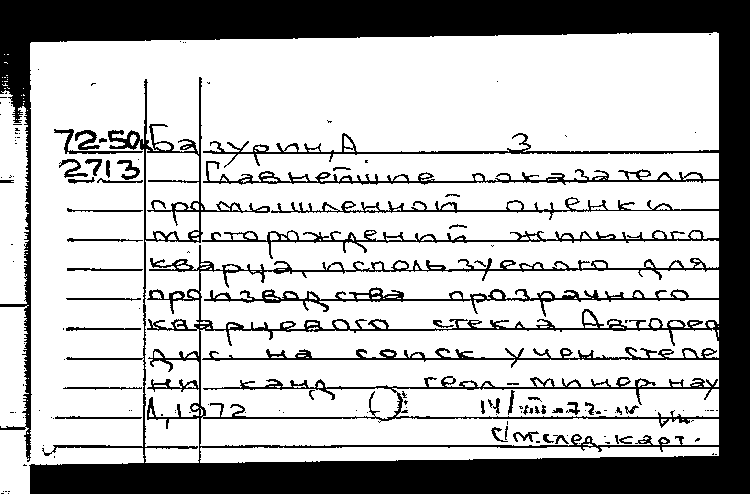 72-50к Базурин, А 3
2713 Главнейшие показатели
промышленной оценки
месторождений жильного
кварца, используемого для
производства прозрачного
кварцевого стекла. Автореф
дис. на соиск. учен. степе
ни канд. геол-минер. нау
Л., 1972 14/VIII-72
см. след. карт.